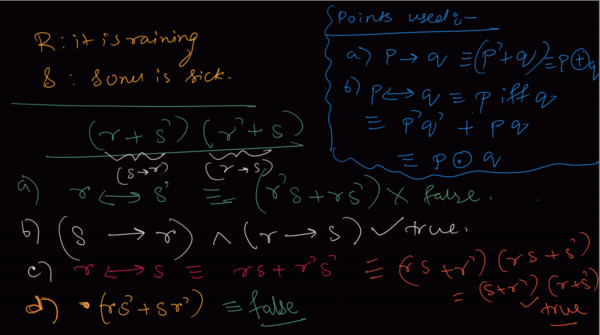 R : it is raining
S : Sonu is sick.
Points used :-
a) p → q ≡ (p' + q) ≡ p ⊕ q
b) p ↔ q ≡ p iff q
≡ p'q' + pq
≡ p ⊙ q
(r + s') (r' + s)
(s → r) (r → s)
a) r ↔ s' ≡ (r's + rs') × false.
b) (s → r) ∧ (r → s) ✓ true.
c) r ↔ s ≡ rs + r's' ≡ (rs + r') (rs + s')
= (s + r') (r + s')
✓ true
d) (rs' + sr') ≡ false